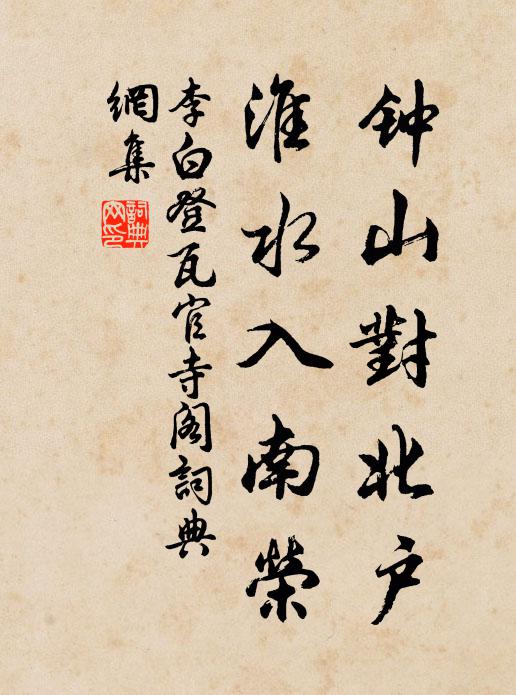 钟山對北户
淮水入南榮
李白登瓦官寺阁詞典
網集
詞典
网印